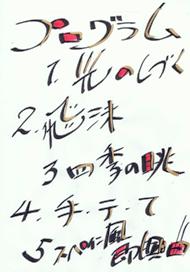 プログラム
1.光のしづく
2.飛沫
3四季の眺
4.手・テ・て
5スペイン風即興!!